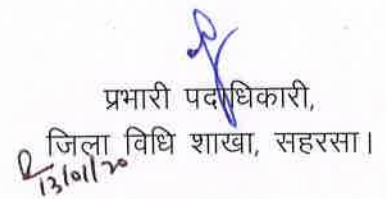 प्रभारी पदाधिकारी,
जिला विधि शाखा, सहरसा।
13/01/20